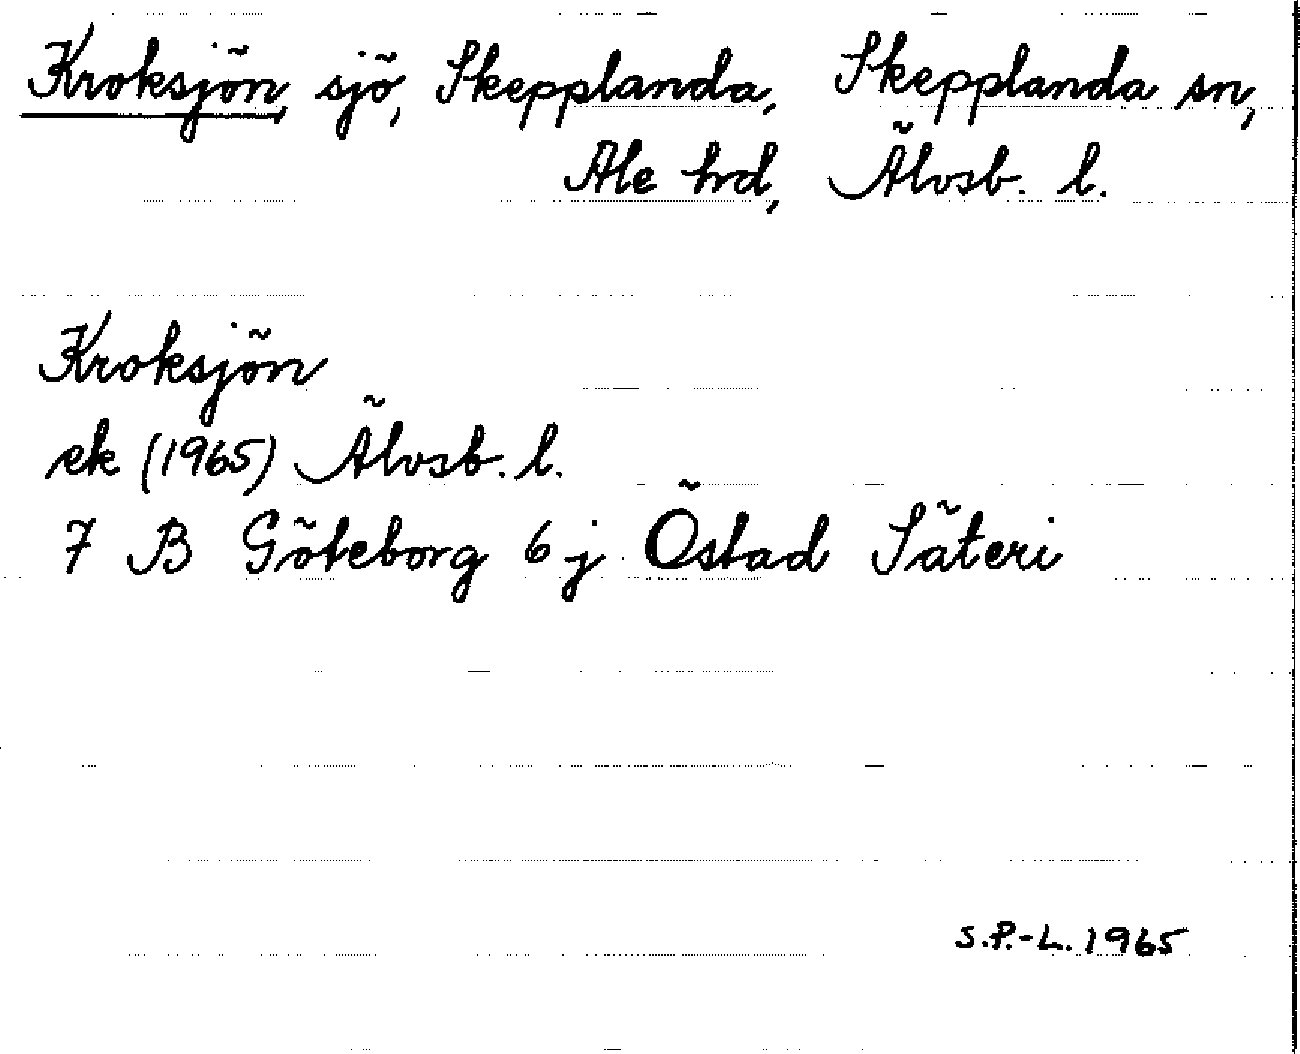 Kroksjön, sjö, Skepplanda, Skepplanda sn,
Ale hrd, Älvsb. l.
Kroksjön
ek (1965) Älvsb. l.
7 B Göteborg 6 j Östad Säteri
S.P.-L. 1965